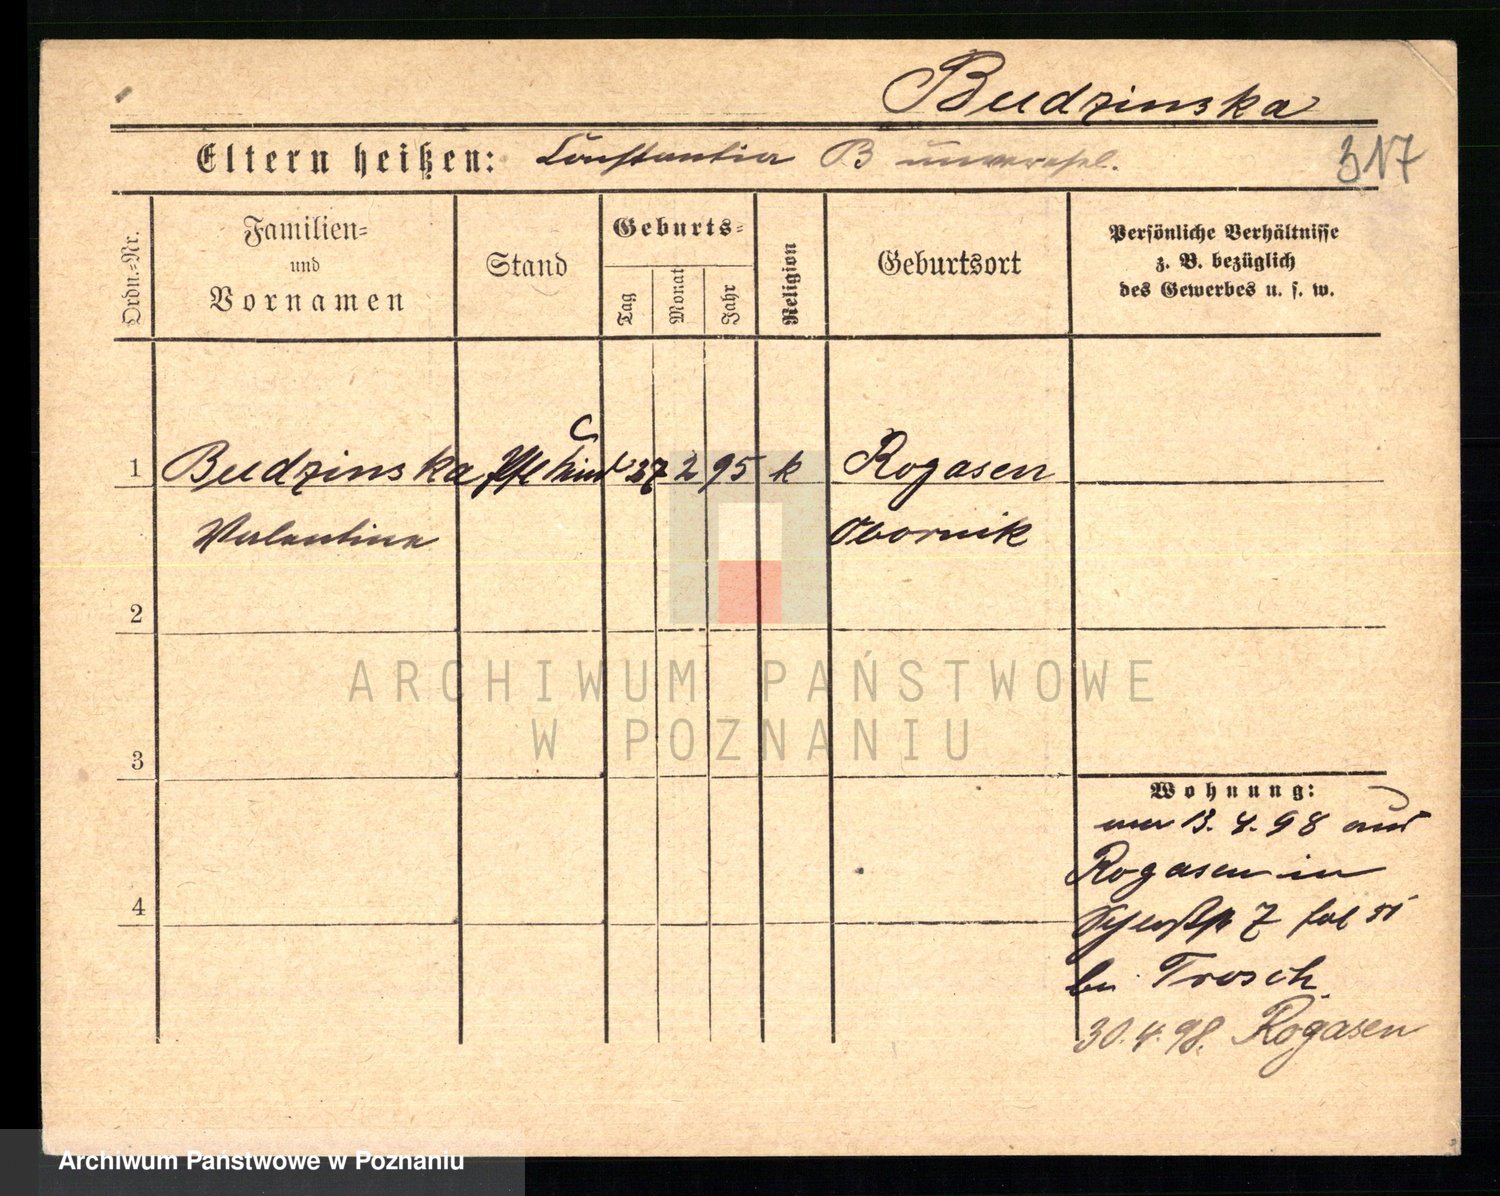 Budzinska
Eltern heißen: Constantia B unverehel.
317
Ordn.-Nr.
Familien-
und
Vornamen
Stand
Geburts-
Tag
Monat
Jahr
Religion
Geburtsort
Persönliche Verhältnisse
z. B. bezüglich
des Gewerbes u. s. w.
1 Budzinska Pfl Kind 27 2 95 k Rogasen
Valentine Obornik
2
3
4
Wohnung:
13. 4. 98 aus
Rogasen in
7
bei Trosch
30. 4. 98. Rogasen
ARCHIWUM PAŃSTWOWE
W POZNANIU
Archiwum Państwowe w Poznaniu